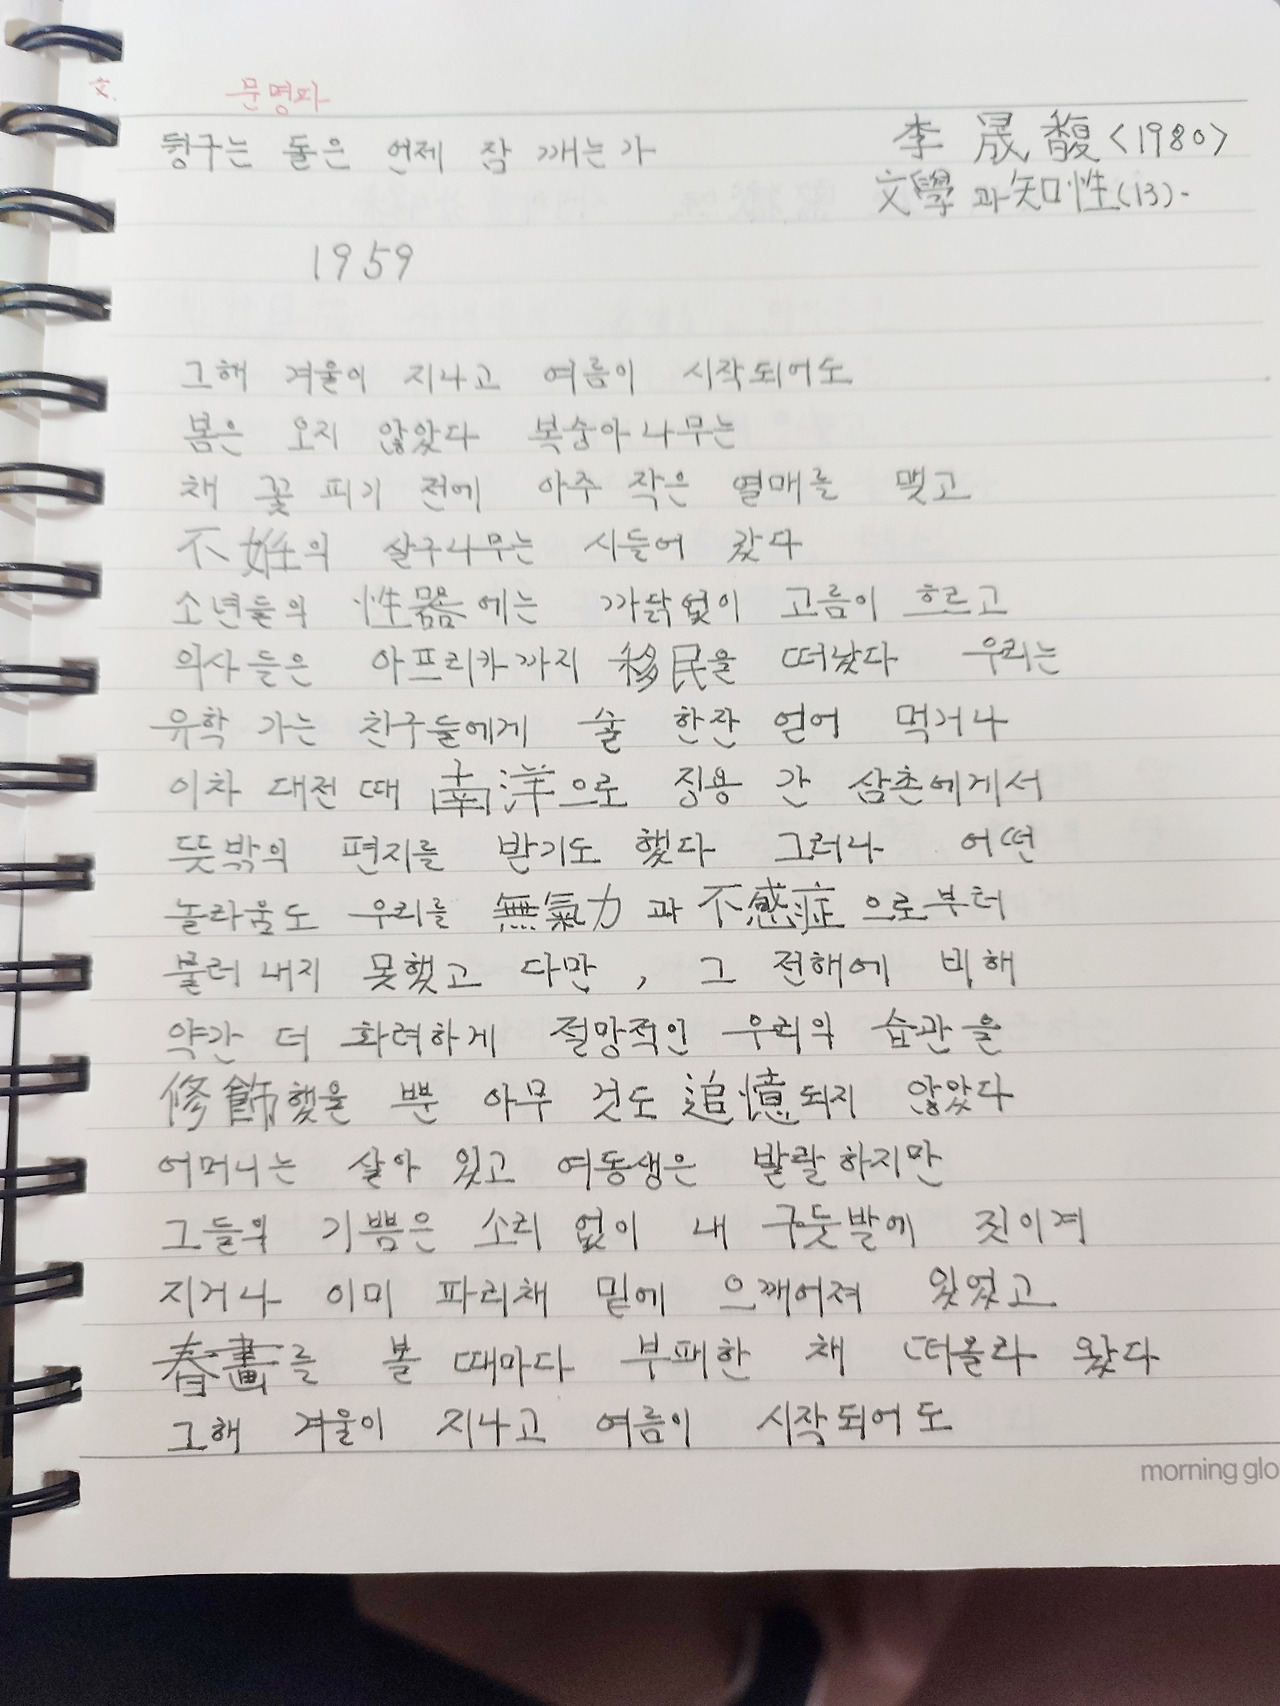 文. 문명파
뒹구는 돌은 언제 잠 깨는가
李 晟馥 <1980>
文學과知性(13).
1959
그해 겨울이 지나고 여름이 시작되어도
봄은 오지 않았다 복숭아나무는
채 꽃 피기 전에 아주 작은 열매를 맺고
不姙의 살구나무는 시들어 갔다
소년들의 性器에는 까닭없이 고름이 흐르고
의사들은 아프리카까지 移民을 떠났다 우리는
유학 가는 친구들에게 술 한잔 얻어 먹거나
이차 대전 때 南洋으로 징용 간 삼촌에게서
뜻밖의 편지를 받기도 했다 그러나 어떤
놀라움도 우리를 無氣力과 不感症으로부터
불러 내지 못했고 다만, 그 전해에 비해
약간 더 화려하게 절망적인 우리의 습관을
修飾했을 뿐 아무 것도 追憶되지 않았다
어머니는 살아 있고 여동생은 발랄하지만
그들의 기쁨은 소리 없이 내 구둣발에 짓이겨
지거나 이미 파리채 밑에 으깨어져 있었고
春畫를 볼 때마다 부패한 채 떠올라 왔다
그해 겨울이 지나고 여름이 시작되어도
morning glo